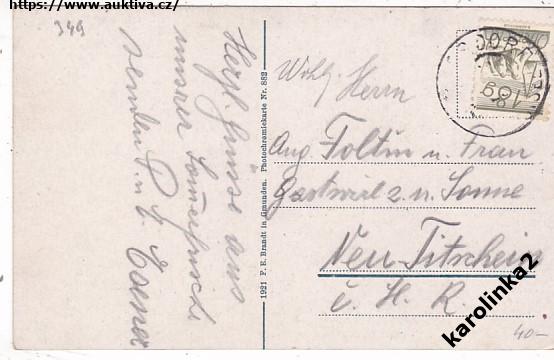 https://www.auktiva.cz/
349
Herzl. Grüsse aus
unserer
senden
1921 F. E. Brandt in Gmunden. Photochromiekarte Nr. 882
Wohlg. Herrn
Aug. Foltin u. Frau
Gastwirt z. n. Sonne
Neu Titschein
č. H. R.
DORF
karolinka2
40-